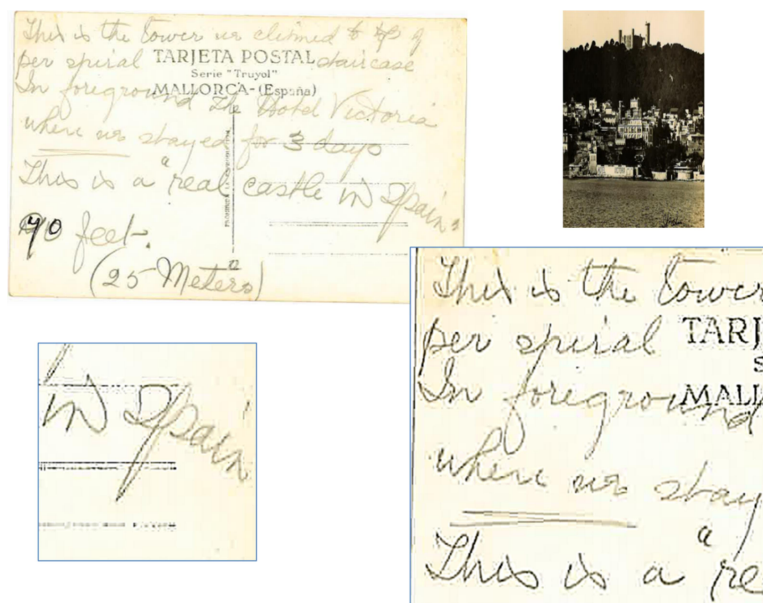 This is the tower we climed to top of
per spiral staircase
TARJETA POSTAL
Serie "Truyol"
MALLORCA-(España)
In foreground the Hotel Victoria
where we stayed for 3 days
This is a "real castle in Spain"
feet.
(25 Meters)
This is the tower
per spiral TARJ
S
In foreground MALL
where we stay
This is a "re
in Spain